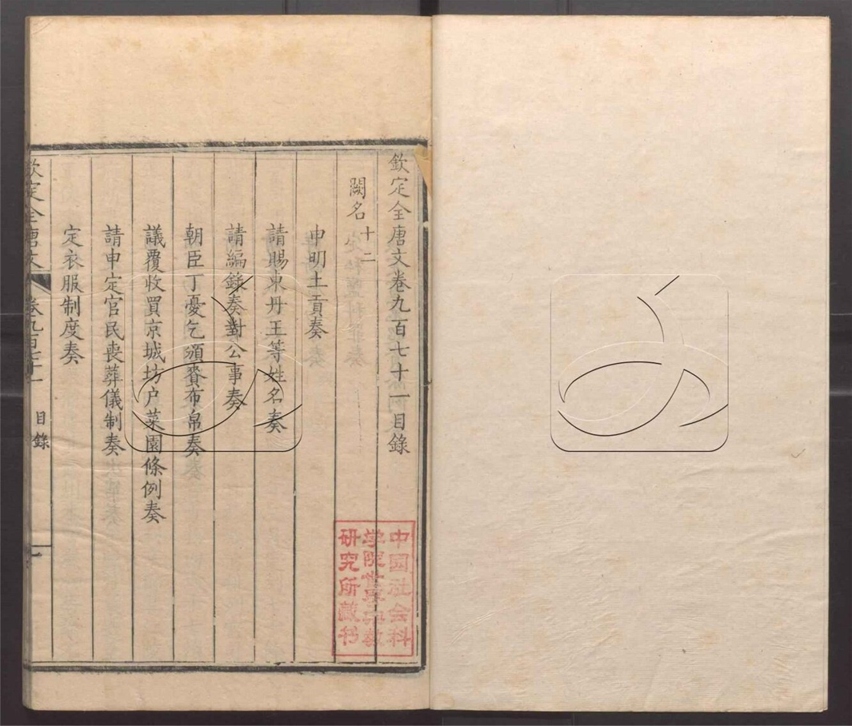 欽定全唐文卷九百七十一目錄
闕名十二
申明土貢奏
請賜東丹王等姓名奏
請編錄奏對公事奏
朝臣丁憂乞頒賚布帛奏
議覆收買京城坊户菜園條例奏
請申定官民喪葬儀制奏
定衣服制度奏
欽定全唐文 卷九百七十一 目錄 一
中国社会科
学院世界宗教
研究所藏书